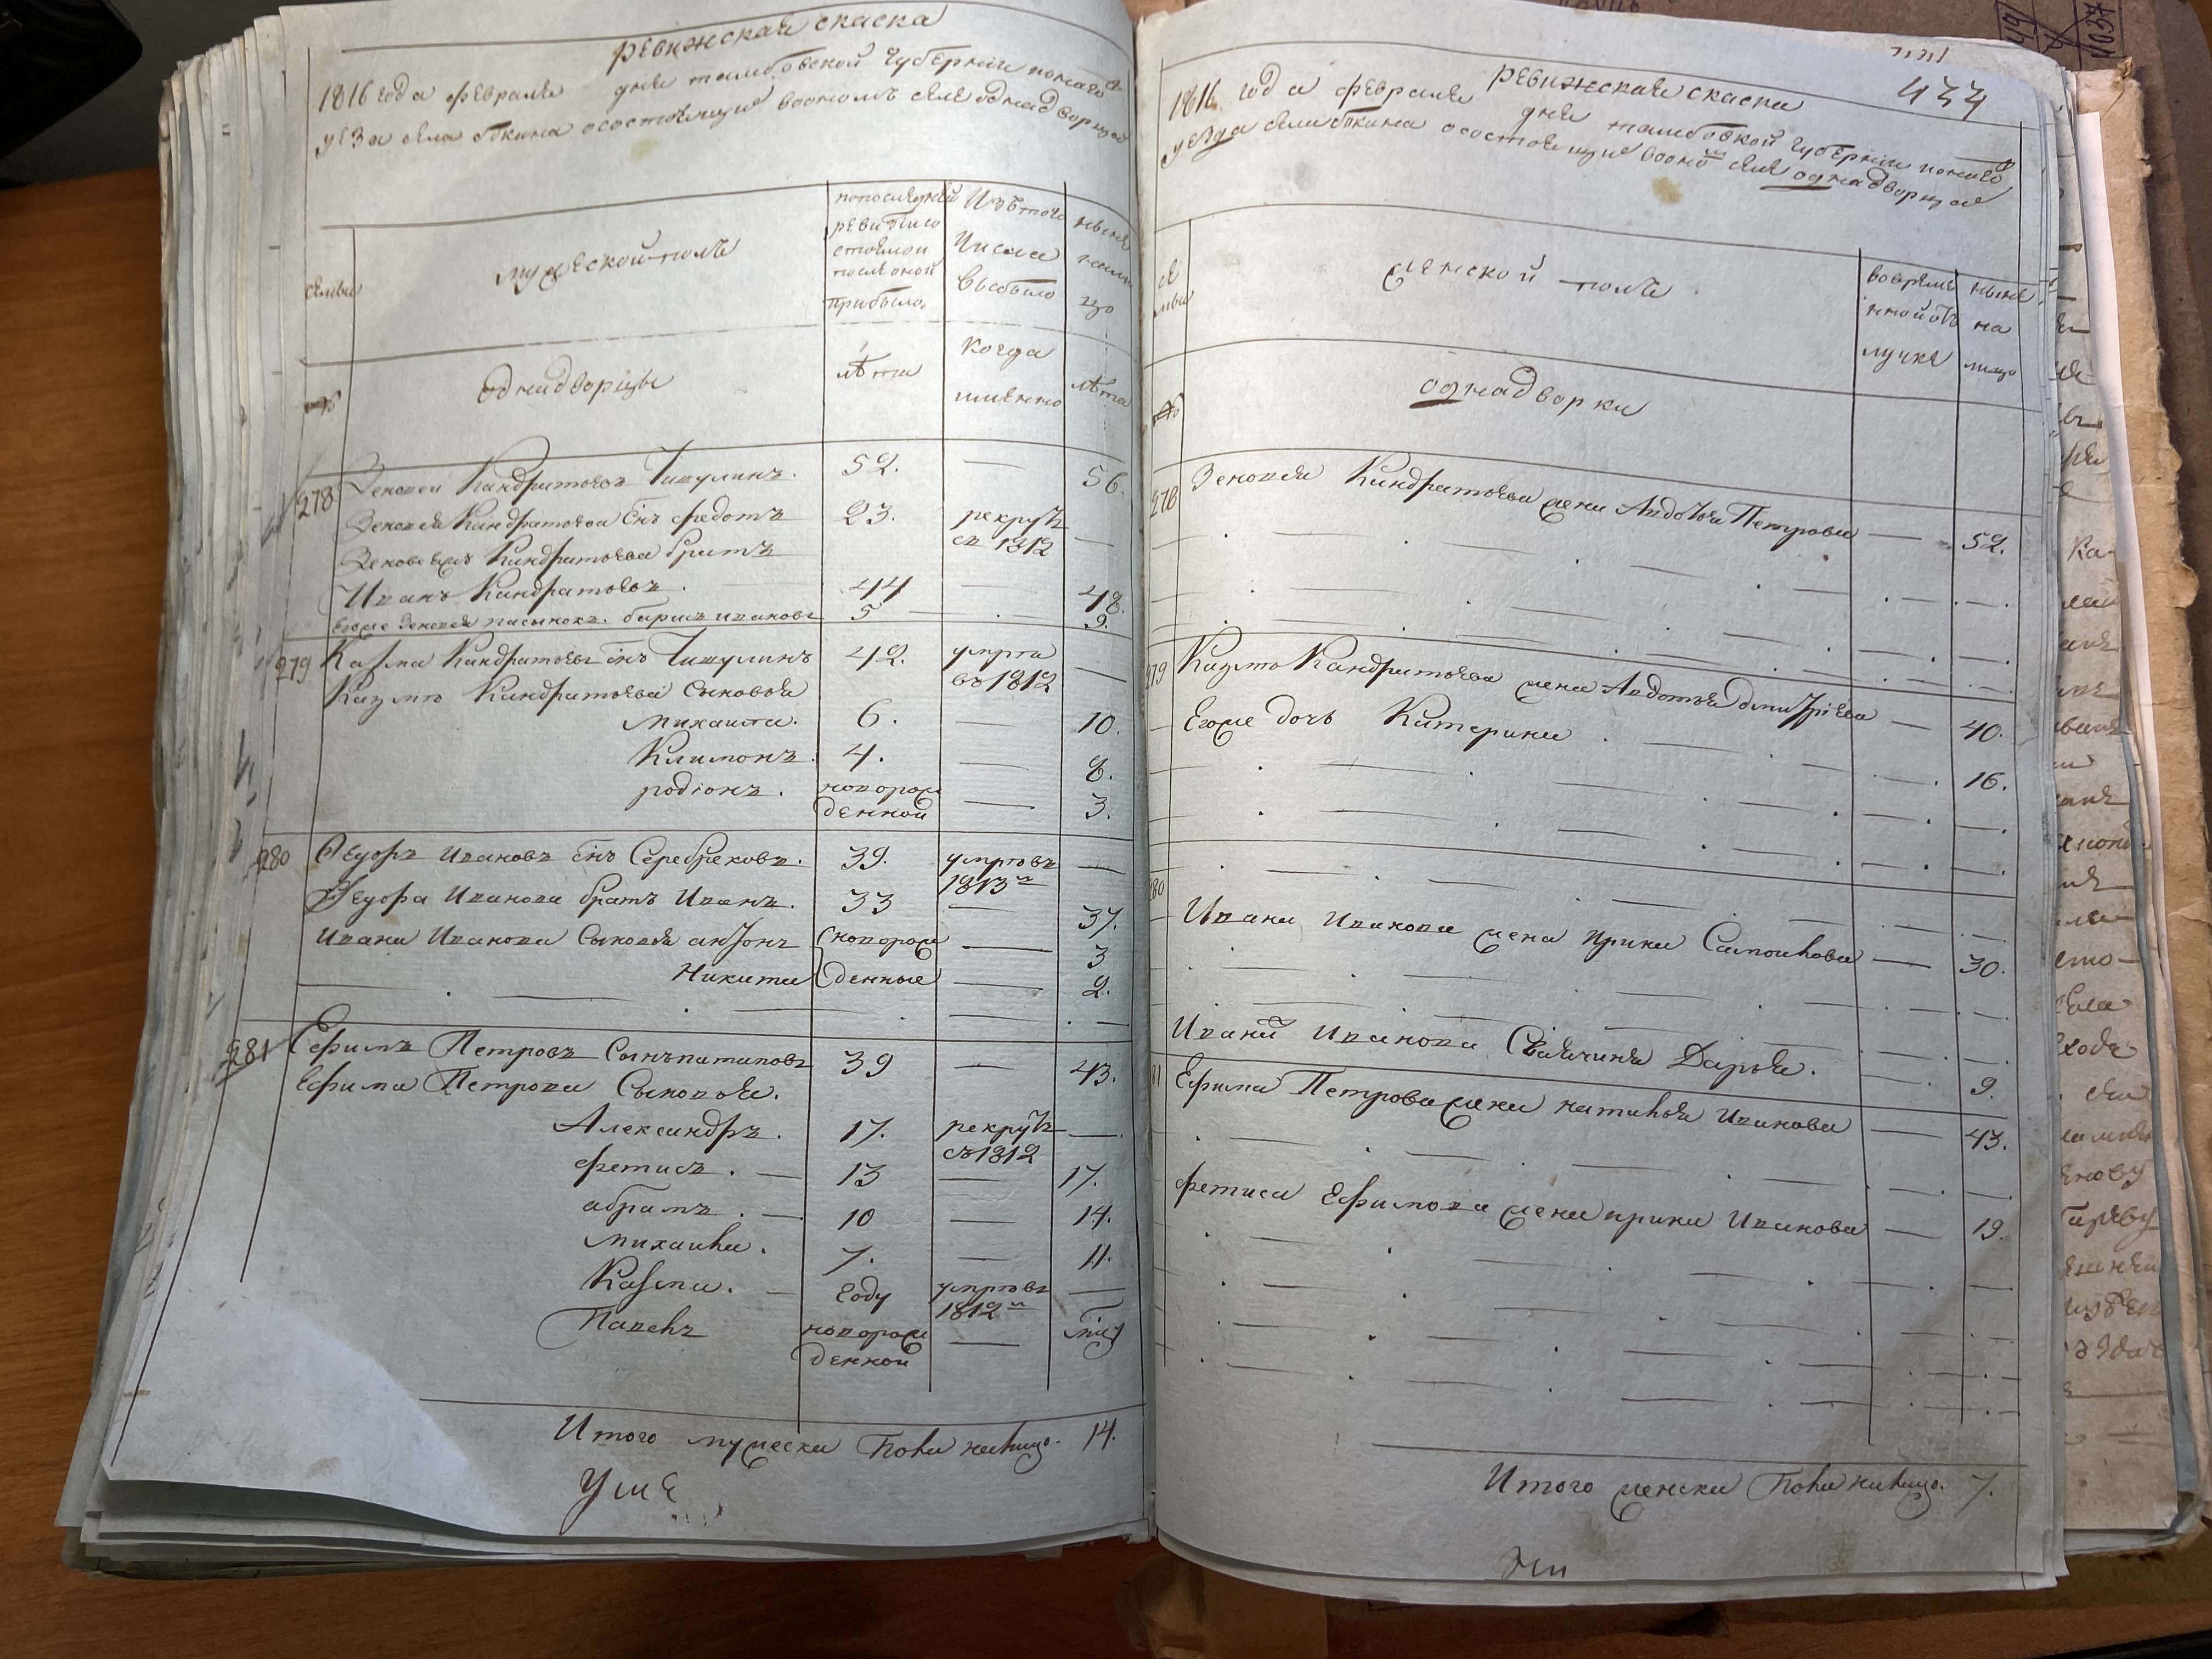 ревижская скаска
1816 года февраля дня тамбовской губернии
уезда села осостоящие воономъ селе однадворцах
семьи
мужеской полъ
попоследней
ревизиио
состояло и
после оной
прибыло.
Изъ того
числа
выбыло
ныне
налицо
№
однидворцы
лѣта
когда
имянно
лѣта
278 Зеновей Кандратьевъ 52. — 56.
Зеновея Кандратьева сiнъ федотъ 23. рекрутъ —
въ 1812
Зеновеемъ Кандратьева братъ
Иванъ Кандратьевъ. 44 — 48.
Ево же Зеновея пасынокъ. барисъ ивановъ 5 — 9.
279 Казма Кандратьевъ сiнъ 42. умрта —
въ 1812
Казмы Кандратьева сыновья
михаила. 6. — 10.
Климонъ. 4. — 8.
родiонъ. новорож — 3.
денной
280 Федоръ Ивановъ сiнъ Серебрековъ. 39. умртвъ —
1813
Федора Иванова братъ Иванъ. 33 — 37.
Ивана Иванова сыновья антонъ новорож — 3
Никита денные — 2.
281 Ефимъ Петровъ Сынъпатаповъ 39 — 43.
Ефима Петрова Сыновья.
Александръ. 17. рекрутъ —
съ1812
фетисъ. — 13 — 17.
абрамъ. — 10 — 14.
михаила. 7. — 11.
Казма. — году умртвъ —
1812
Павелъ новорож —
денной
Итого мужеска пола налицо. 14.
434
ревижская скаска
1816 года февраля дня тамбовкой губернии
уезда села осостоящие вооно селе однадворцах
се
мьи
женской полъ
вовреме
нной отъ
лучке
ныне
на
лицо
№
однадворки
278 Зеновея Кандратьева жена Авдотья Петрова — 52.
279 Казмы Кандратьева жена Авдотья дмитрiева — 40.
Егоже дочь Катерина 16.
280
Ивана Иванова жена ирина Самоилова — 30.
Ивана Иванова Дарья. 9.
81 Ефима Петрова жена наталья Иванова — 43.
фетиса Ефимова жена ирина Иванова — 19.
Итого женска пола налицо. 7.